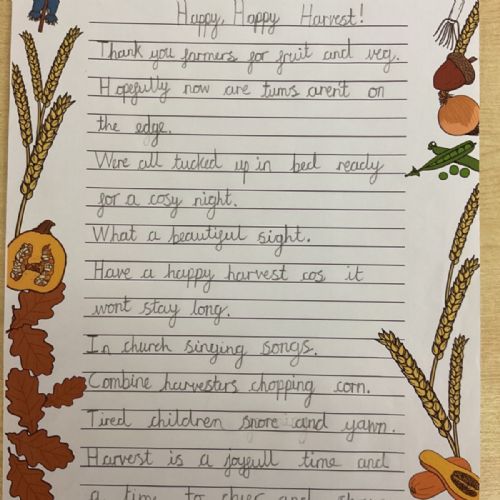 Happy, Happy Harvest!
Thank you farmers for fruit and veg.
Hopefully now are tums aren't on
the edge.
Were all tucked up in bed ready
for a cosy night.
What a beautiful sight.
Have a happy harvest cos it
wont stay long.
In church singing songs.
Combine harvesters chopping corn.
Tired children snore and yawn.
Harvest is a joyfull time and
a time to cheer and